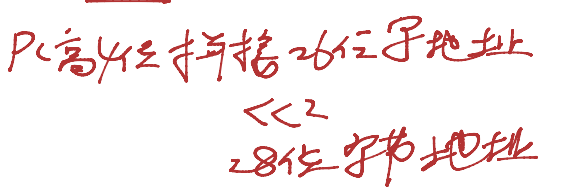 PC高4位拼接26位字地址
<<2
28位字节地址